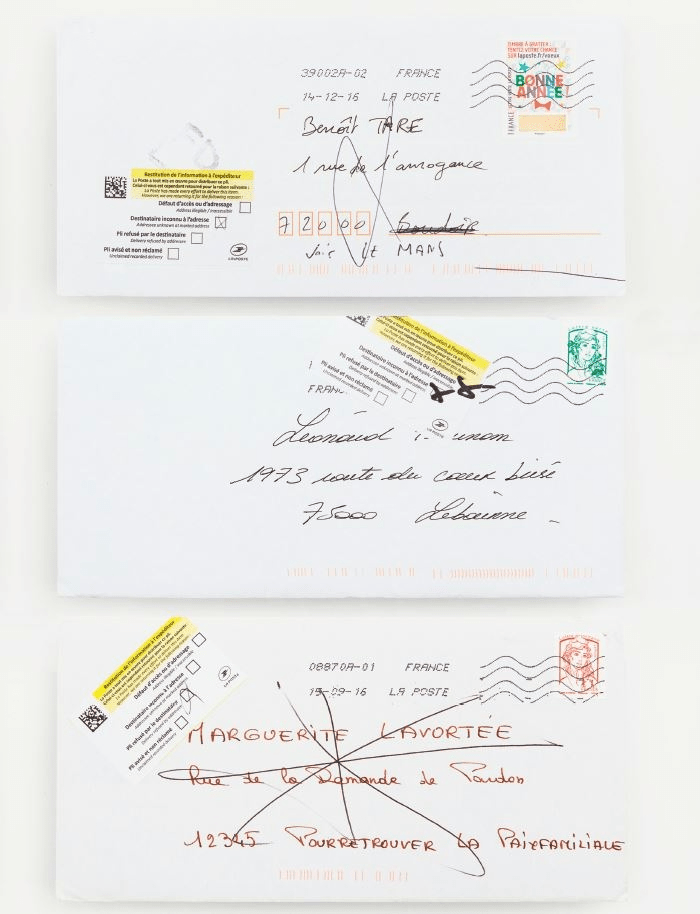 TIMBRE À GRATTER :
TENTEZ VOTRE CHANCE
SUR laposte.fr/voeux
BONNE
ANNÉE !
FRANCE
39002A-02 FRANCE
14-12-16 LA POSTE
Benoît TARE
1 rue de l'arrogance
72000
Voir LE MANS
Restitution de l'information à l'expéditeur
La Poste a tout mis en œuvre pour distribuer ce pli.
Celui-ci vous est cependant retourné pour la raison suivante :
La Poste has made every effort to deliver this item.
However, we are returning it for the following reason :
Défaut d'accès ou d'adressage
Address illegible / inaccessible
Destinataire inconnu à l'adresse
Addressee unknown at marked address
Pli refusé par le destinataire
Delivery refused by addressee
Pli avisé et non réclamé
Unclaimed recorded delivery
LA POSTE
Restitution de l'information à l'expéditeur
Défaut d'accès ou d'adressage
Destinataire inconnu à l'adresse
Pli refusé par le destinataire
Delivery refused by addressee
Pli avisé et non réclamé
Unclaimed recorded delivery
LA POSTE
FRANC
1973 route du cœur brisé
75000
Restitution de l'information à l'expéditeur
Défaut d'accès ou d'adressage
Address illegible / inaccessible
Destinataire inconnu à l'adresse
Addressee unknown at marked address
Pli refusé par le destinataire
Delivery refused by addressee
Pli avisé et non réclamé
Unclaimed recorded delivery
LA POSTE
08870A-01 FRANCE
15-09-16 LA POSTE
MARGUERITE LAVORTÉE
Rue de la Demande de Pardon
12345 POURRETROUVER LA PAIXFAMILIALE